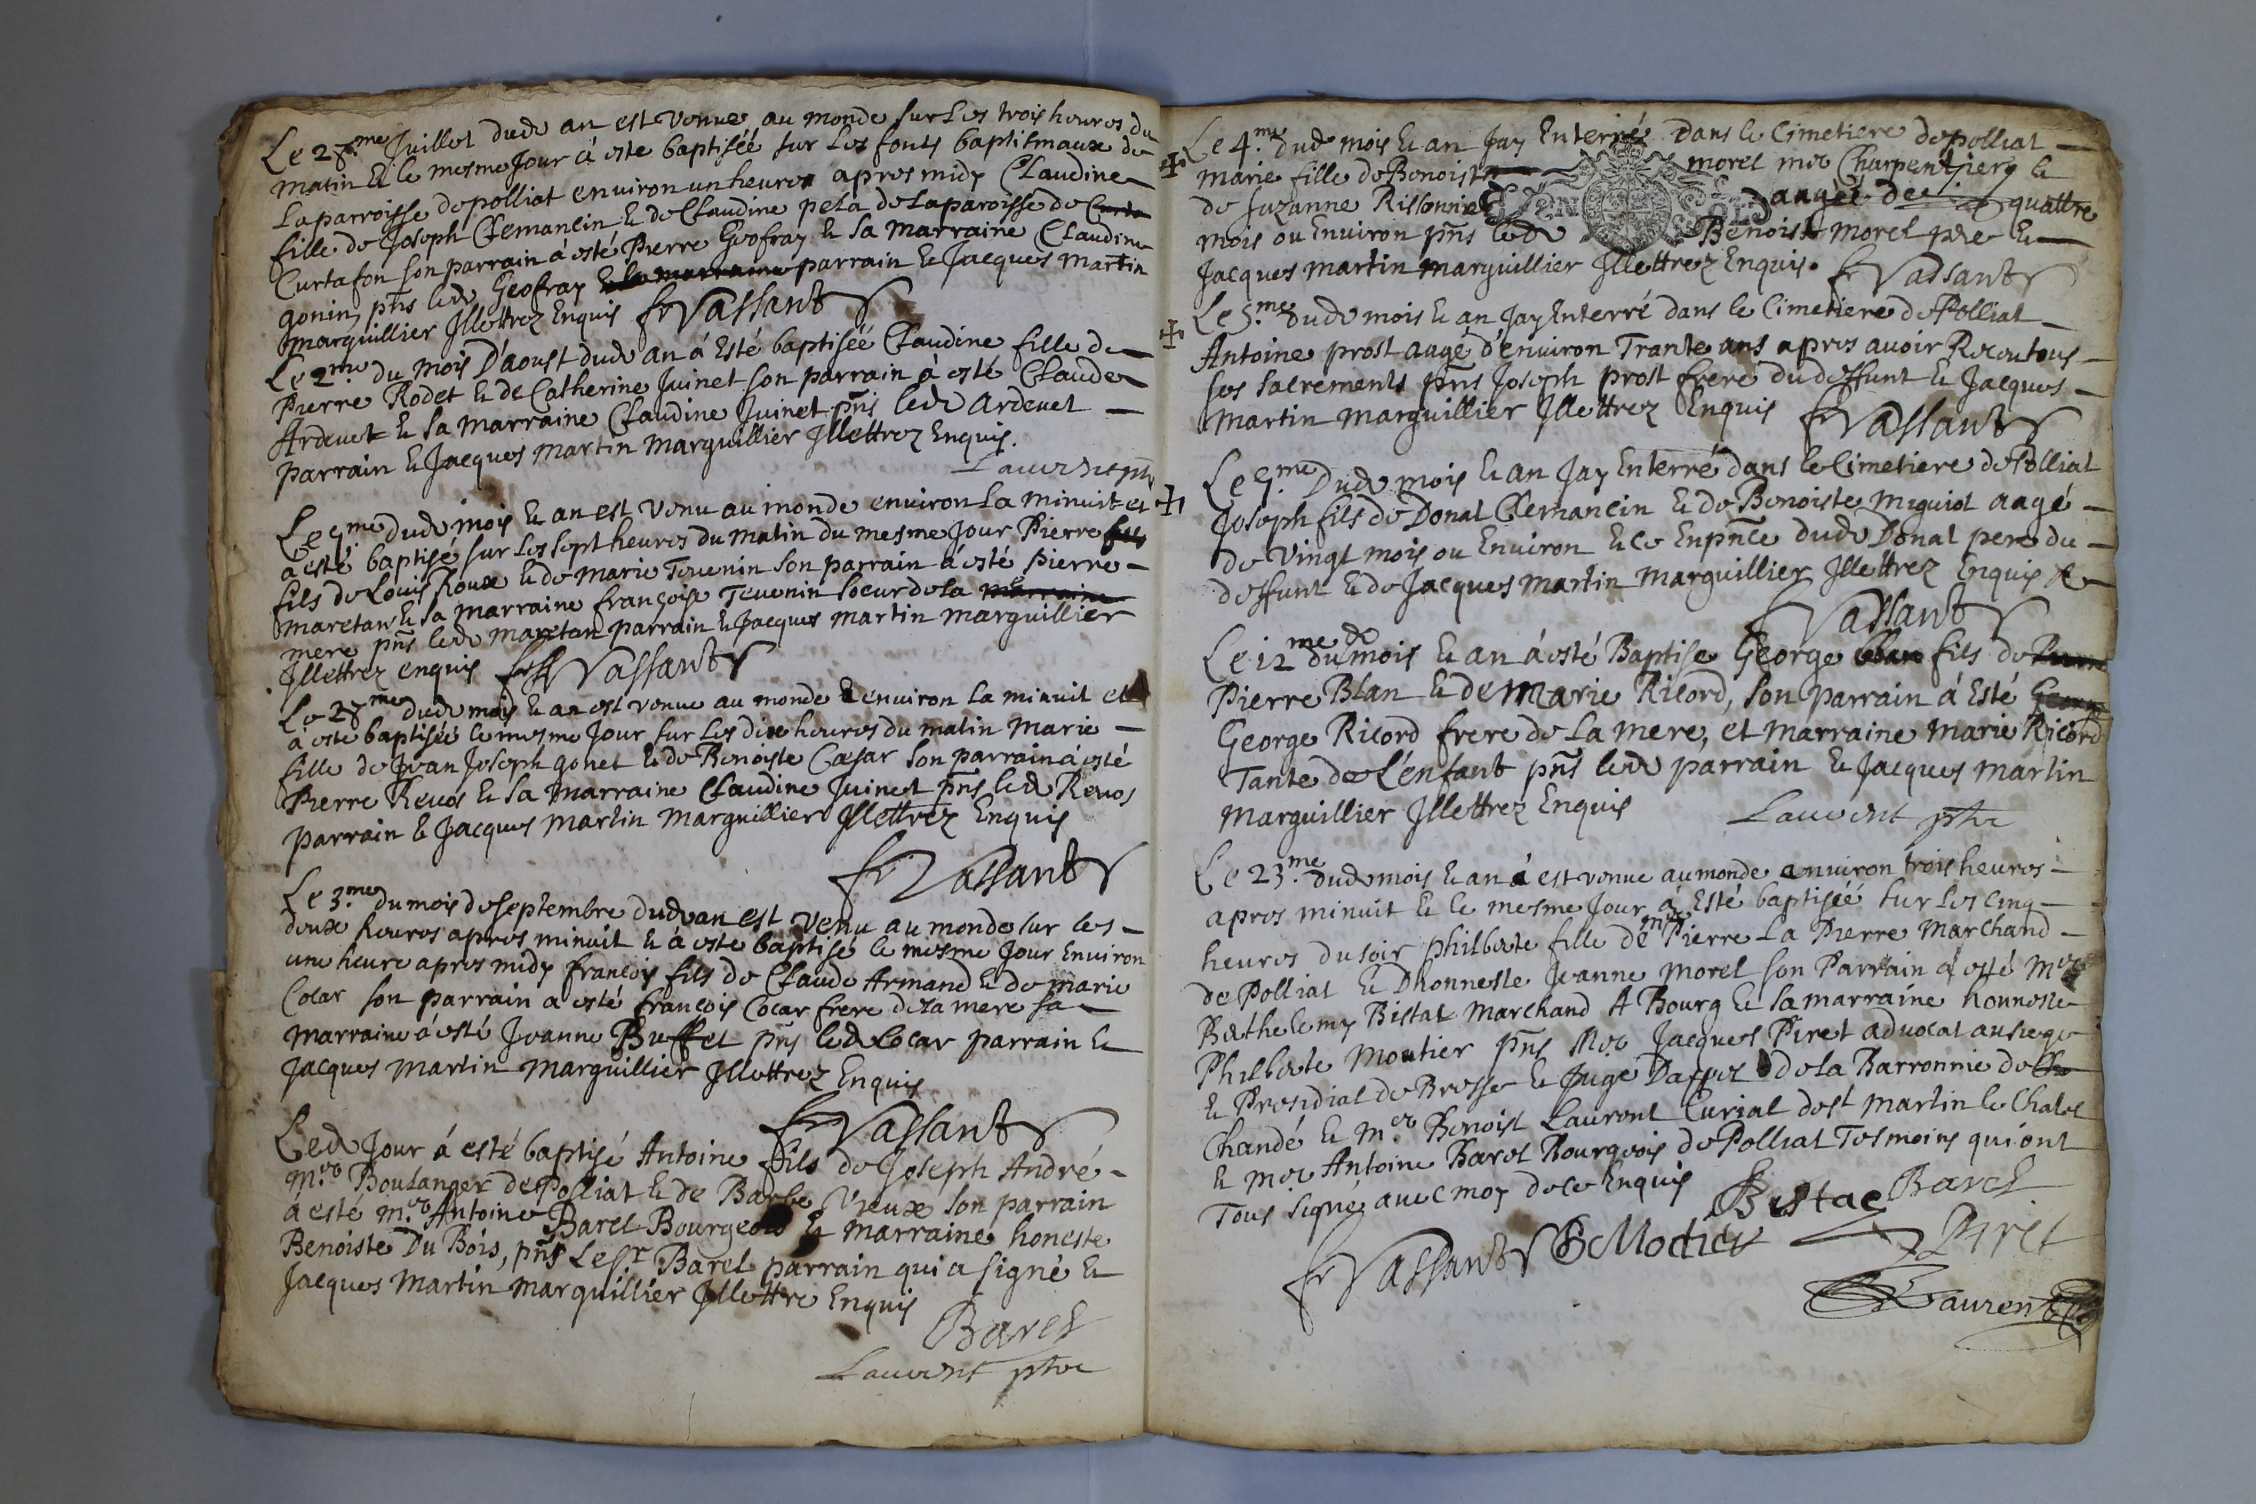 Le 28.me Juillet dudt an est venue au monde sur les trois heures du
matin & le mesme Jour à este baptiséé sur les fonts baptismaux de
La parroisse de polliat environ un heure apres midy Claudine
fille de Joseph Clemancin & de Claudine pela de La paroisse de
Curtafon son parrain à esté Pierre Geofray & sa marraine Claudine
gonin, pñs ledt Geofray parrain & Jacques martin
marguillier Jllettrez Enquis fr Vassant
Le 2.me du mois D'aoust dudt an á Esté baptiséé Claudine fille de
Pierre Rodet & de Catherine Juinet son parrain à esté Claude
Ardevet & sa marraine Claudine Juinet pñs ledt Ardevet
parrain & Jacques martin marguillier Jllettrez Enquis.
Laurent
Le 5.me dudt mois & an est venu au monde environ La minuit et
a esté baptisé sur Les sept heures du matin du mesme Jour Pierre
fils de Louis Roux & de marie Tevenin son parrain á esté Pierre
maretan & sa marraine françoise Tevenin soeur de la
mere pñs ledt maretan parrain & Jacques martin marguillier
Jllettrez enquis fr Vassant
Le 28.me dudt mois & an est venue au monde environ la minuit et
à este baptiséé le mesme Jour sur Les dix heures du matin Marie
fille de Jean Joseph gonet & de Benoiste Cæsar son parrain á esté
Pierre Revos & sa marraine Claudine Juinet pñs ledt Revos
parrain & Jacques martin marguillier Jllettrez Enquis
fr Vassant
Le 3.me du mois de septembre dudt an est venu au monde sur les
deux heures apres minuit & à este baptisé le mesme Jour Environ
une heure apres midy françois fils de Claude Armand & de marie
Cocar son parrain a esté françois Cocar frere de la mere sa
marraine á esté Jeanne Buffet pñs ledt Cocar parrain &
Jacques martin marguillier Jllettrez Enquis
fr Vassant
Ledt Jour á esté baptisé Antoine fils de Joseph André
m.re Boulanger de Polliat & de Barbe Vieux son parrain
á esté m.re Antoine Barel Bourgeois & marraine honeste
Benoiste Du Bois, pñs Le Sr Barel parrain qui a signé &
Jacques Martin Marguillier Jllettre Enquis
Barel
Laurent ptre
Le 4.me dudt mois & an Jay Enterréé dans le Cimetiere de polliat
marie fille de Benoist morel mre Charpentier &
de suzanne Rissonnier aagéé de quattre
mois ou Environ pñs ledt Benoist morel pere &
Jacques martin marguillier Jllettrez Enquis. fr Vassant
Le 5.me dudt mois & an Jay Enterré dans le Cimetiere de Polliat
Antoine prost aagé d'environ Trante ans apres avoir Receu tous
ses sacrements pñs Joseph prost frere du deffunt & Jacques
Martin marguillier Jllettrez Enquis fr Vassant
Le 5.me Dudt mois & an Jay Enterré dans le Cimetiere de Polliat
Joseph fils de Donat Clemancin & de Benoiste Miguiot aagé
de vingt mois ou Environ & ce Enpñce dudt Donat pere du
deffunt & de Jacques martin marguillier Jllettrez Enquis
fr Vassant
Le 12.me du dt mois & an á esté Baptise George fils de
Pierre Blan & de Marie Ricord, son parrain á Esté
George Ricord frere de La mere, et marraine marie Ricord
Tante de L'enfant pñs ledt parrain & Jacques martin
Marguillier Jllettrez Enquis
Laurent ptre
Le 23.me dudt mois & an á est venue au monde environ trois heures
apres minuit & le mesme Jour á Esté baptiséé sur Les cinq
heures du soir philberte fille de mre Pierre La Pierre Marchand
de Polliat & Dhonneste Jeanne Morel son Parrain á esté Mre
Barthelemy Bistat Marchand A Bourg & sa marraine honneste
Philberte Moutier pñs Mre Jacques Piret advocat au siege
& Presidial de Bresse & Juge Dappel de la Barronnie de
Chandé & m.re Benoist Laurent Curial de st martin le Chatel
& mre Antoine Barel Bourgeois de Polliat Tesmoins qui ont
Tous signé avec moy de ce Enquis
Bistac Barel
fr Vassant Piret
Laurent